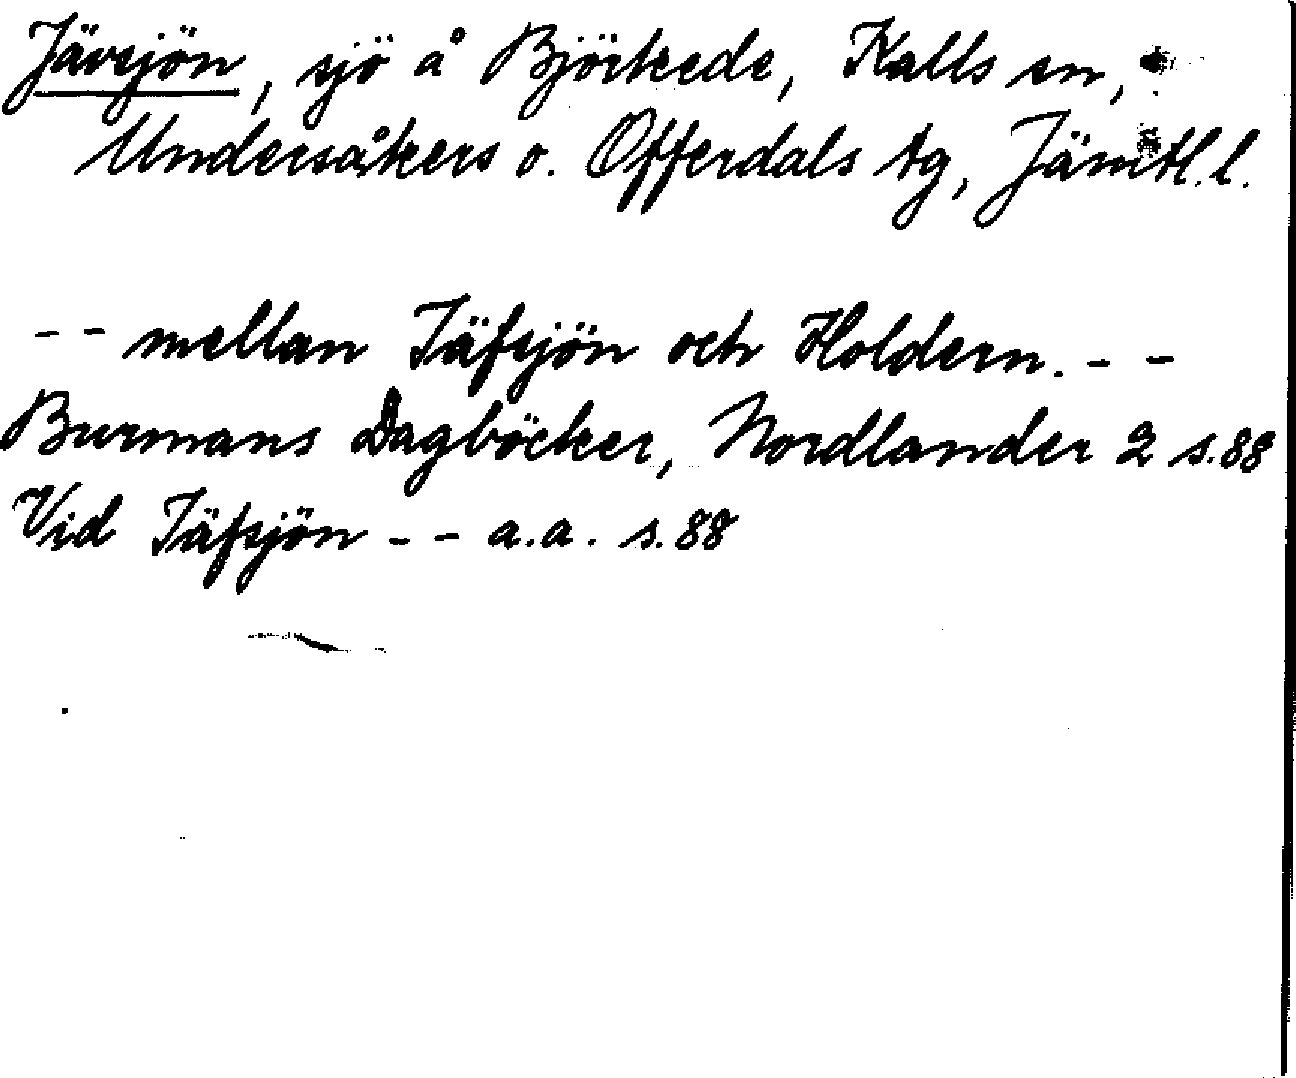 Jävsjön, sjö å Björkede, Kalls sn,
Undersåkers o. Offerdals tg, Jämtl. l.
-- mellan Jäfsjön och Holdern. --
Burmans Dagböcker, Nordlander 2 s. 88
Vid Jäfsjön -- a.a. s. 88